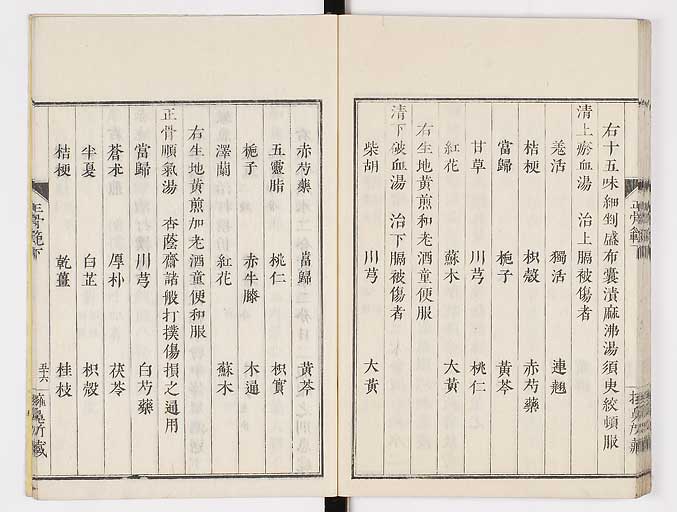 右十五味細剉盛布囊漬麻沸湯須臾絞頓服
清上瘀血湯 治上膈被傷者
羗活 獨活 連翹
桔梗 枳殼 赤芍藥
當歸 梔子 黃芩
甘草 川芎 桃仁
紅花 蘇木 大黃
右生地黃煎和老酒童便服
清下破血湯 治下膈被傷者
柴胡 川芎 大黃
赤芍藥 當歸 黃芩
五靈脂 桃仁 枳實
梔子 赤牛膝 木通
澤蘭 紅花 蘇木
右生地黃煎加老酒童便和服
正骨順氣湯 杏蔭齋諸般打撲傷損之通用
當歸 川芎 白芍藥
蒼朮 厚朴 茯苓
半夏 白芷 枳殼
桔梗 乾薑 桂枝
正骨範下
五十六